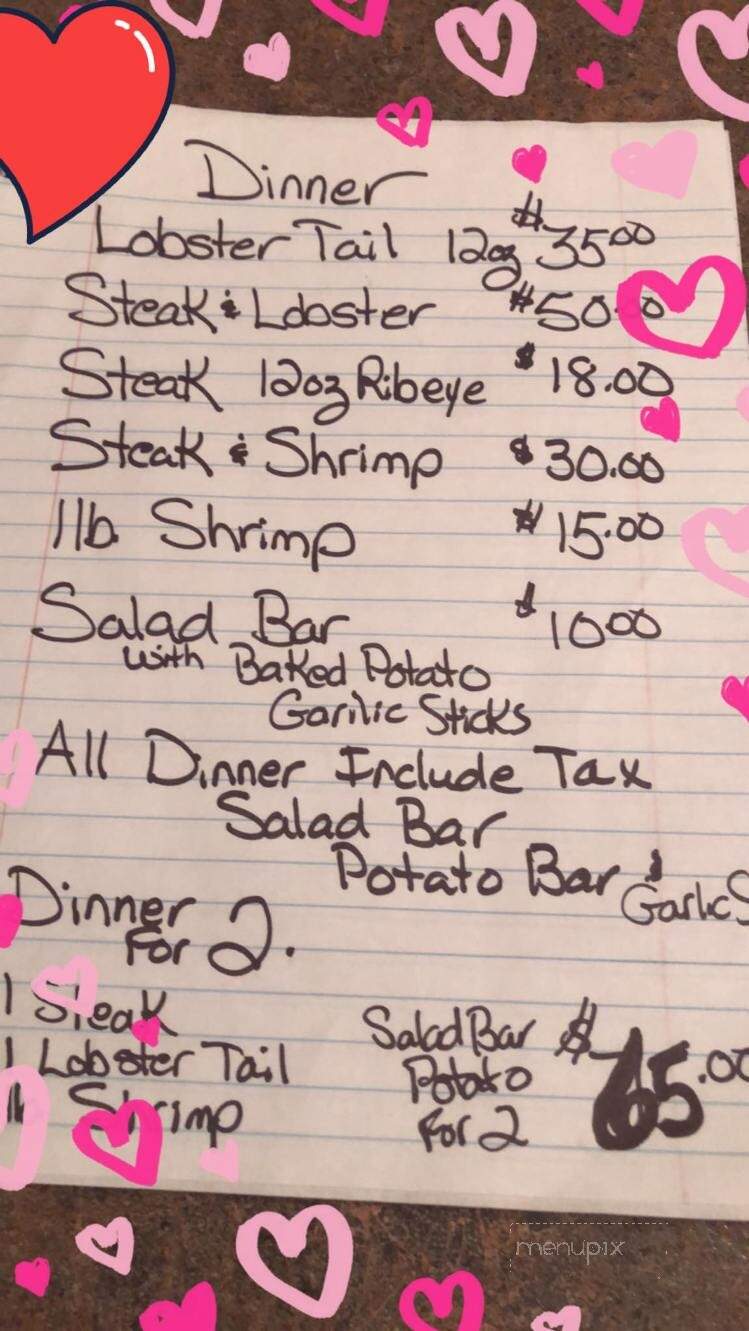 Dinner
Lobster Tail 12oz $35.00
Steak & Lobster $50.00
Steak 12oz Ribeye $18.00
Steak & Shrimp $30.00
1lb Shrimp $15.00
Salad Bar $10.00
with Baked Potato
Garilic Sticks
All Dinner Include Tax
Salad Bar
Potato Bar & Garlic S
Dinner
For 2.
1 Steak
1 Lobster Tail
lb Shrimp
Salad Bar
Potato
For 2
$65.00
menupix